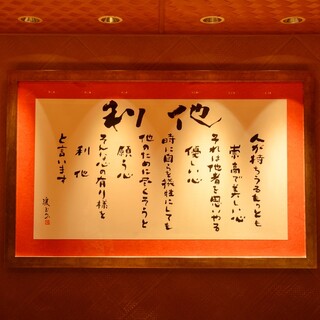 利他
人が持ちうるもっとも
崇高で美しい心
それは他者を思いやる
優しい心
時に自らを犠牲にしても
他のために尽くそうと
願う心
そんな心の有り様を
利他
と言います